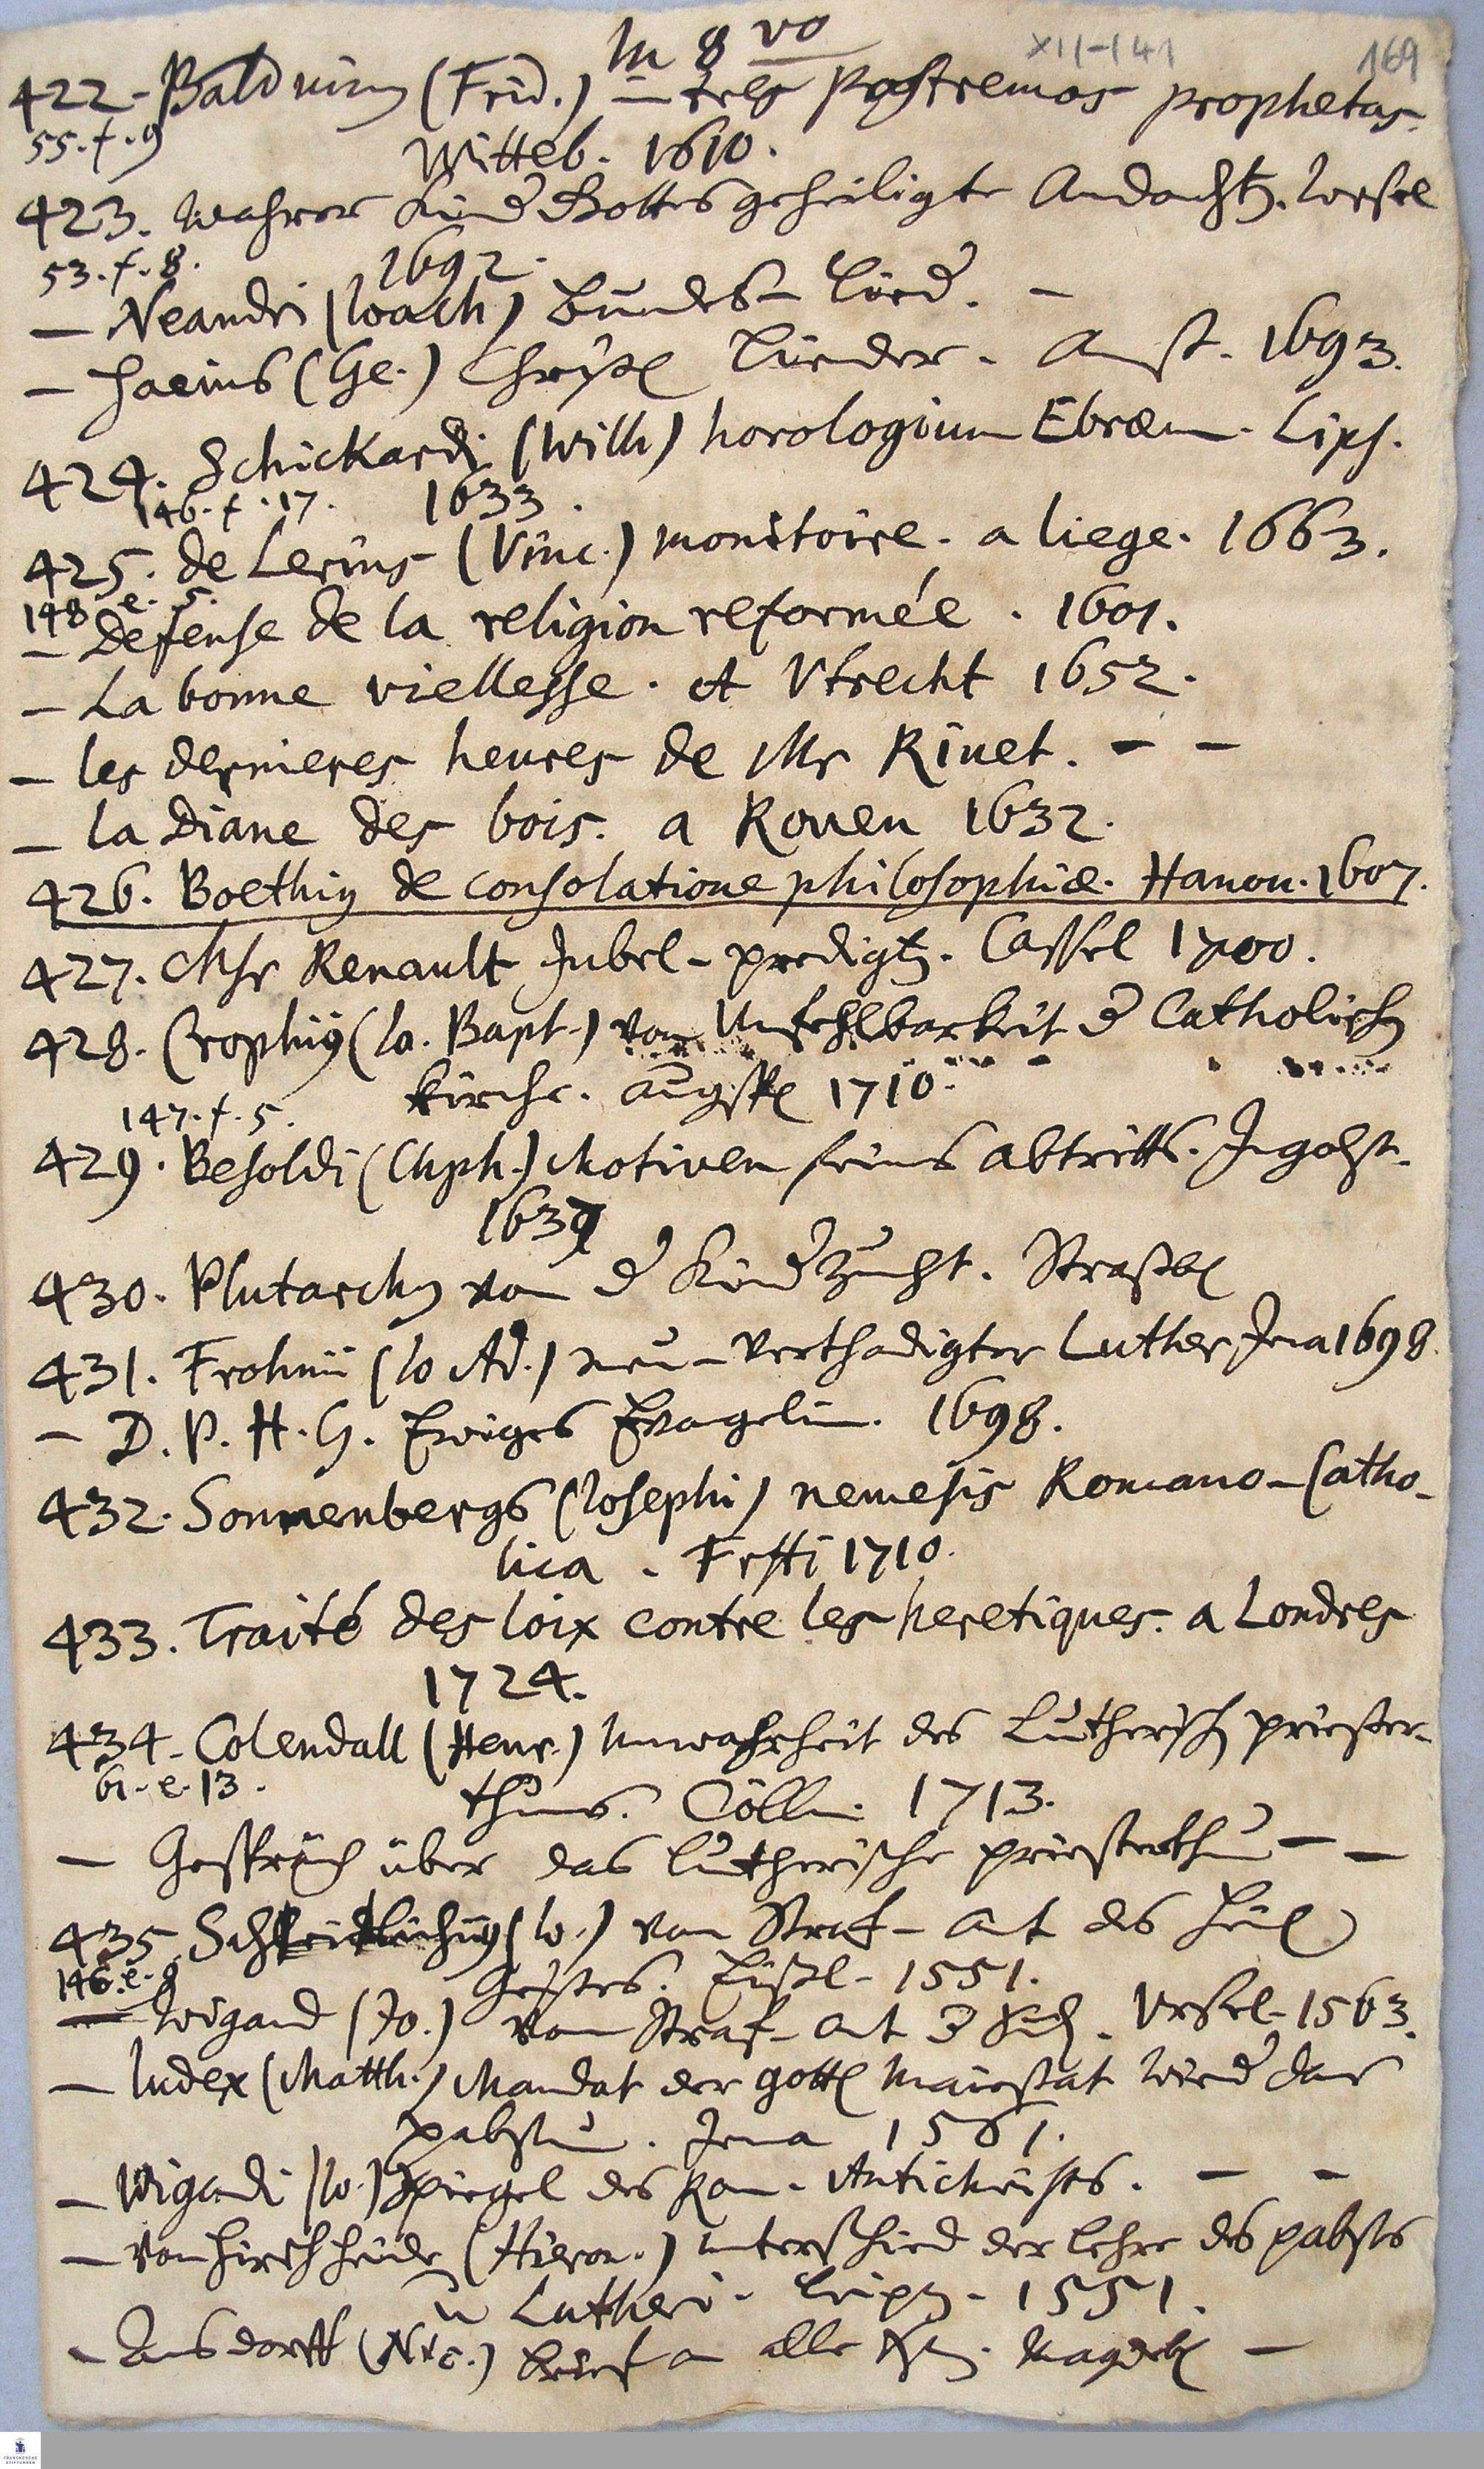 In 8 vo
XII-141
169
422. Balduinus (Frid.) in tres postremos prophetas.
55. f. 9
Witteb. 1610.
423. Wahrer Kinder Gottes geheiligte Andacht. Wesel
53. f. 8.
1692.
— Neandri (Joach) Bundes-Lieder. —
— (Ge.) Christl Lieder. Amst. 1693.
424. Schickardi (Wilh) horologium Ebræum. Lips.
146. f. 17.
1633.
425. de Lerins (Vinc.) monitoire. a liege. 1663.
148 e. 5.
— Defense de la religion reformée. 1601.
— La bonne viellesse. A Vtrecht 1652.
— les dernieres heures de Mr Rivet. — —
— la Diane des bois. a Rouen 1632.
426. Boethius de consolatione philosophiæ. Hanov. 1607.
427. Msr Renault Jubel-predigt. Cassel 1700.
428. Crophius (Jo. Bapt.) von Unfehlbarkeit der Catholisch
Kirche. Augsp 1710.
147. f. 5.
429. Besoldi (Chph.) Motiven seines abtritts. Ingolst.
1637
430. Plutarchus von der Kinderzucht. Straßb
431. Frohnii (Jo Ad.) neu-verthädigter Luther Jena 1698.
— D. P. H. G. Ewiges Evangelium. 1698.
432. Sonnenbergs (Josephi) nemesis Romano-Catho-
lica. Frfti 1710.
433. Traité des loix contre les heretiques. a Londres
1724.
434. Colendall (Henr.) Unwahrheit des Lutherisch priester-
61. e. 13.
thums. Cölln. 1713.
— Gespräch über das Lutherische priesterthum — —
435 (Jo.) vom Straf-Amt des heil
146. e. 9
Geistes. 1551.
— Wigand (Jo.) vom Straf-Amt der Sünd. Ursel. 1563.
— Iudex (Matth.) Mandat der gottl Maiestat wieder das
pabstum. Jena 1561.
— Wigandi (Jo.) Spiegel des Rom. Antichrists. — —
— von Hirschheide (Hieron.) unterschied der lehre des pabsts
u Lutheri. Leipz. 1551.
— Amsdorff (Nic.) brief an alle Magdeb —
FRANCKESCHE
STIFTUNGEN